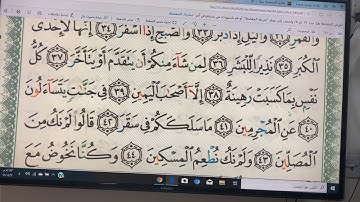 والقمر ٣٢ واليل إذ أدبر ٣٣ والصبح إذا أسفر ٣٤ إنها لإحدى
الكبر ٣٥ نذيرا للبشر ٣٦ لمن شاء منكم أن يتقدم أو يتأخر ٣٧ كل
نفس بما كسبت رهينة ٣٨ إلا أصحب اليمين ٣٩ في جنت يتساءلون
٤٠ عن المجرمين ٤١ ما سلككم في سقر ٤٢ قالوا لم نك من
المصلين ٤٣ ولم نك نطعم المسكين ٤٤ وكنا نخوض مع